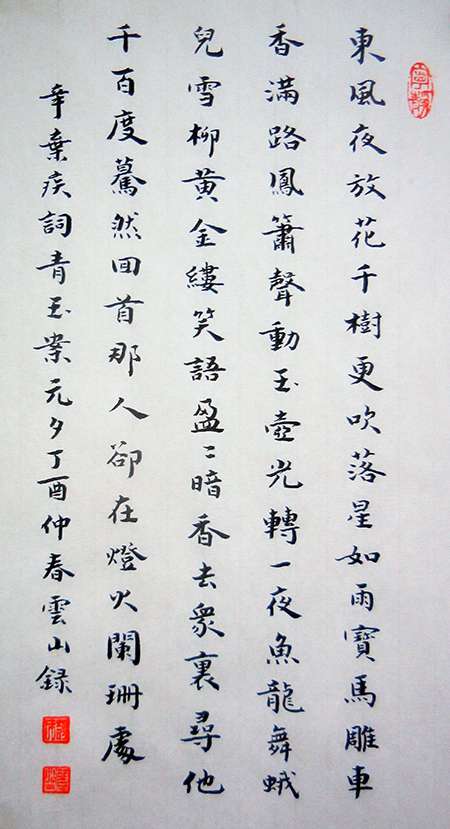 東風夜放花千樹更吹落星如雨寶馬雕車
香滿路鳳簫聲動玉壺光轉一夜魚龍舞蛾
兒雪柳黃金縷笑語盈〻暗香去眾裏尋他
千百度驀然回首那人卻在燈火闌珊處
辛棄疾詞青玉案元夕丁酉仲春雲山録